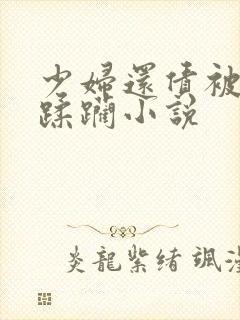 少婦還債被
蹂躪小説
炎龍紫緒 颯漫